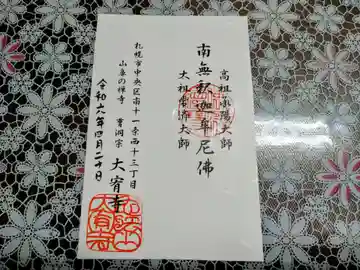 高祖承陽大師
南無釈迦牟尼佛
太祖常済大師
札幌市中央区南十一条西十三丁目
山鼻の禅寺
曹洞宗 大宥寺
令和六年四月二十日
大宥寺